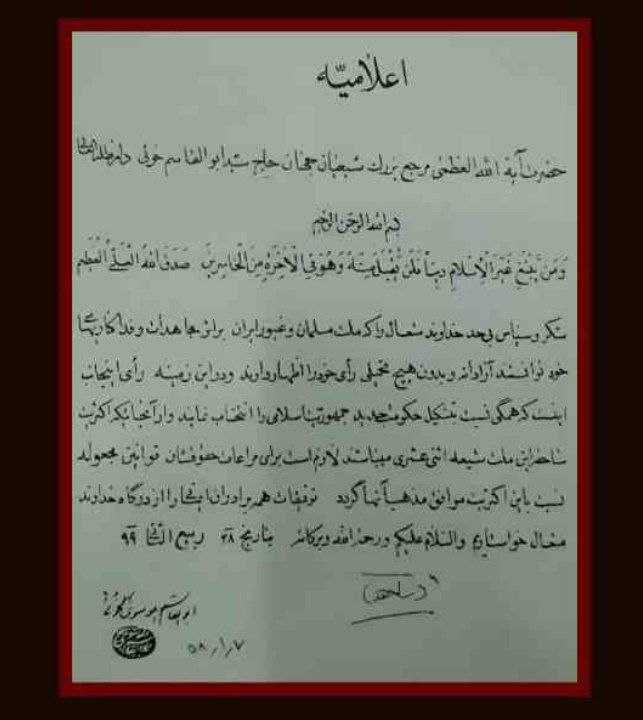 اعلامیّه
حضرت آیة الله العظمی مرجع بزرك شیعیان جهان حاج سید ابوالقاسم خوئی دام ظله العالی
بسم الله الرحمن الرحیم
وَمَن یَبْتَغِ غَیْرَ الْاِسْلامِ دیناً فَلَنْ یُقْبَلَ مِنْهُ وَهُوَ فِی الْآخِرَةِ مِنَ الْخاسِرینَ صَدَقَ اللهُ الْعَلِیُّ الْعَظیم
شکر و سپاس بی حد خداوند متعال را که ملت مسلمان و غیور ایران براثر مجاهدات و فداکاریهای
خود توانستند آزادانه و بدون هیچ تحمیلی رأی خود را اظهار دارند ودر این زمینه رأی اینجانب
اینست که همگی نسبت بتشکیل حکومت جدید جمهوریت اسلامی را انتخاب نمایند واز آنجائیکه اکثریت
ساحقه این ملت شیعه اثنی عشری میباشند لازم است برای مراعات حقوقشان قوانین مجعوله
نسبت باین اکثریت موافق مذهب آنها گردد توفیقات همه برادران ایمانی را از درگاه خداوند
متعال خواستاریم والسلام علیکم ورحمة الله وبرکاته بتاریخ ۲۸ ربیع الثانی ۹۹
ابوالقاسم الموسوی الخوئی
۵۸/۱/۷